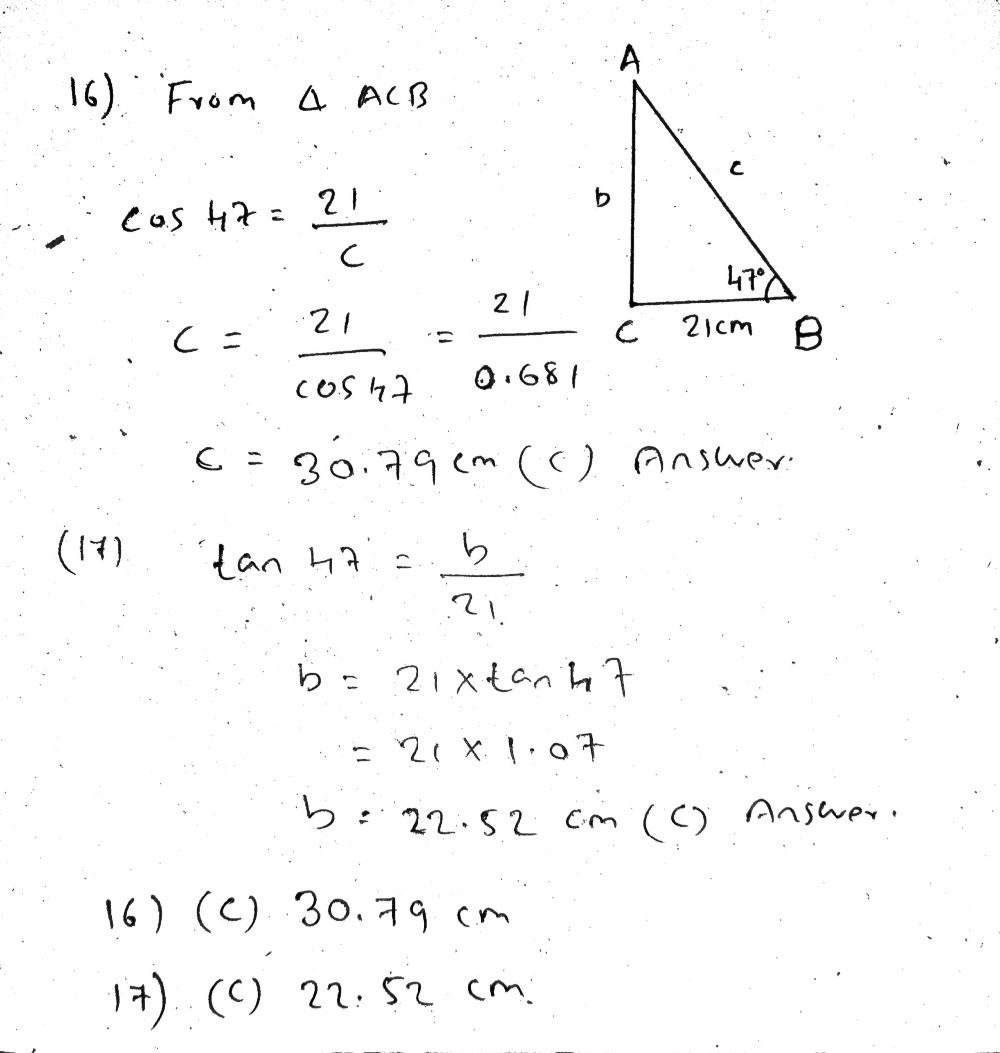 16) From Δ ACB
A
cos 47 = 21/c
b
c
47°
C 21cm B
c = 21/cos 47 = 21/0.681
c = 30.79 cm (C) Answer.
(17) tan 47 = b/21
b = 21 x tan 47
= 21 x 1.07
b = 22.52 cm (C) Answer.
16) (C) 30.79 cm
17) (C) 22.52 cm.